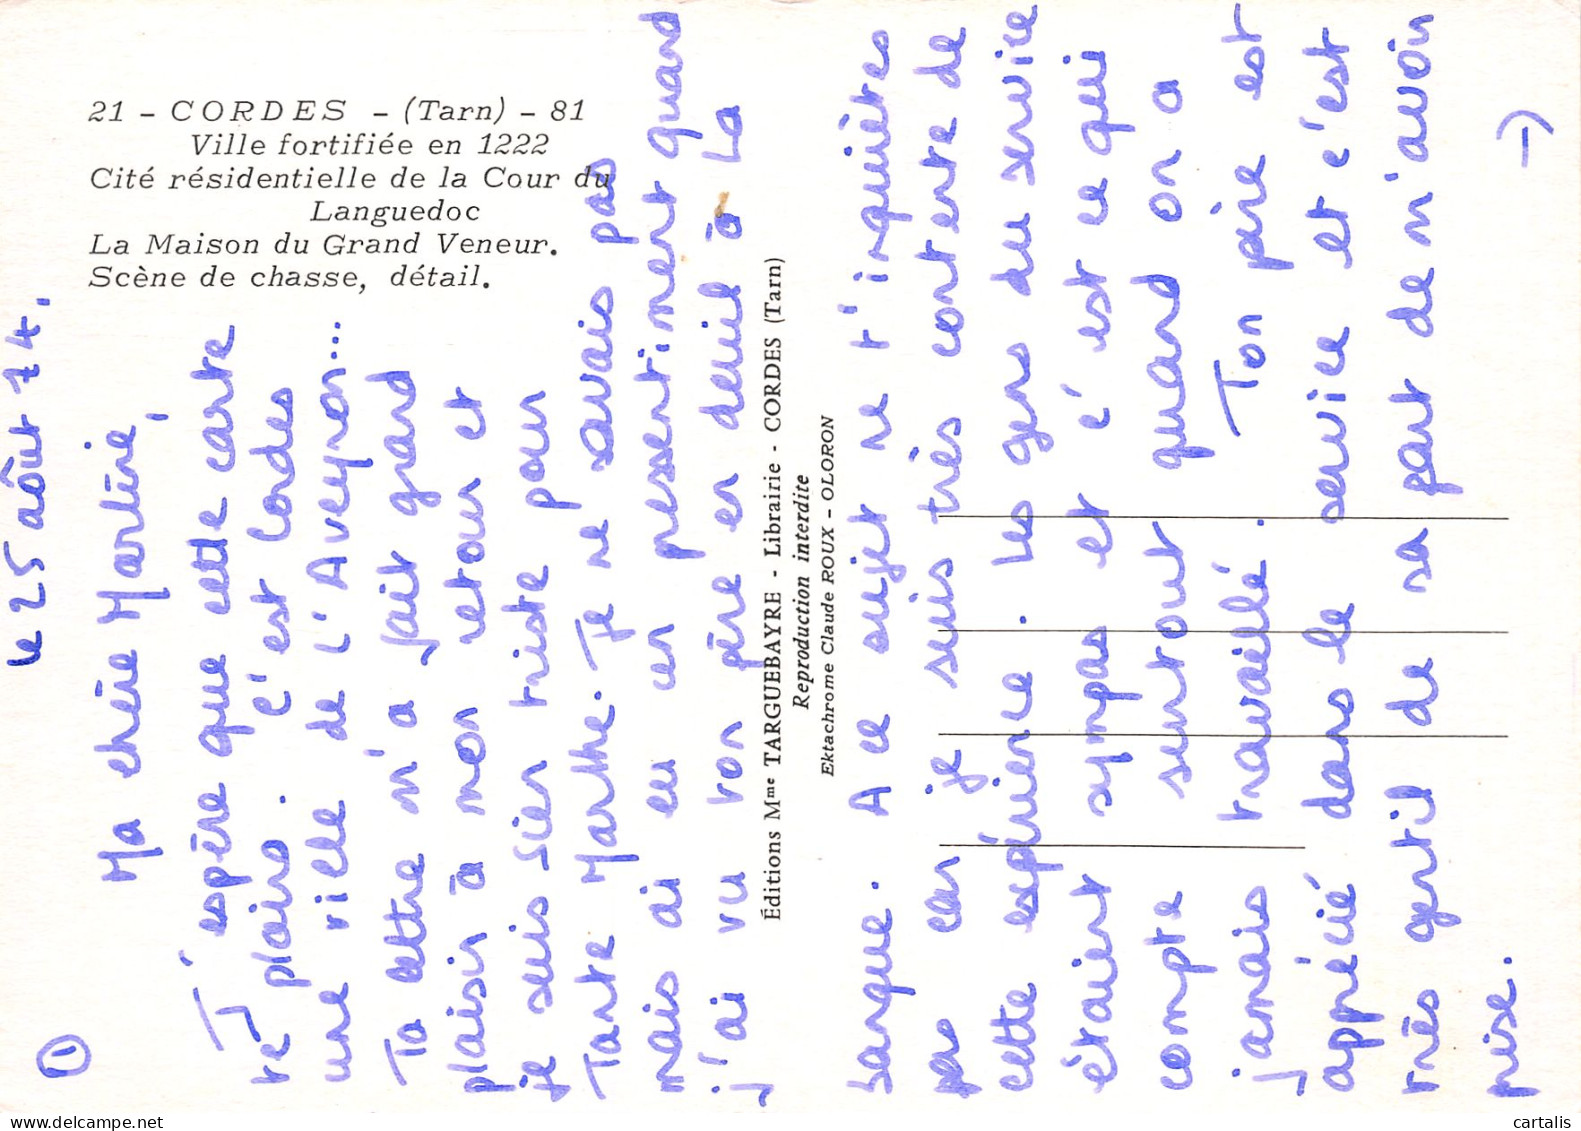 21 - CORDES - (Tarn) - 81
Ville fortifiée en 1222
Cité résidentielle de la Cour du
Languedoc
La Maison du Grand Veneur.
Scène de chasse, détail.
Éditions Mme TARGUEBAYRE - Librairie - CORDES (Tarn)
Reproduction interdite
Ektachrome Claude ROUX - OLORON
1
le 25 août 74.
Ma chère Martine,
J'espère que cette carte
te plaira. C'est Cordes
une ville de l'Aveyron...
Ta lettre m'a fait grand
plaisir à mon retour et
je suis bien triste pour
Tante Marthe. Je ne savais pas
mais ai eu un pressentiment quand
j'ai vu ton père en deuil à La
banque. A ce sujet ne t'inquiètes
pas car je suis très contente de
cette expérience. Les gens du service
étaient sympas et c'est ce qui
compte surtout quand on a
jamais travaillé. Ton père est
apprécié dans le service et c'est
très gentil de sa part de m'avoir
prise.
→
cartalis
www.delcampe.net